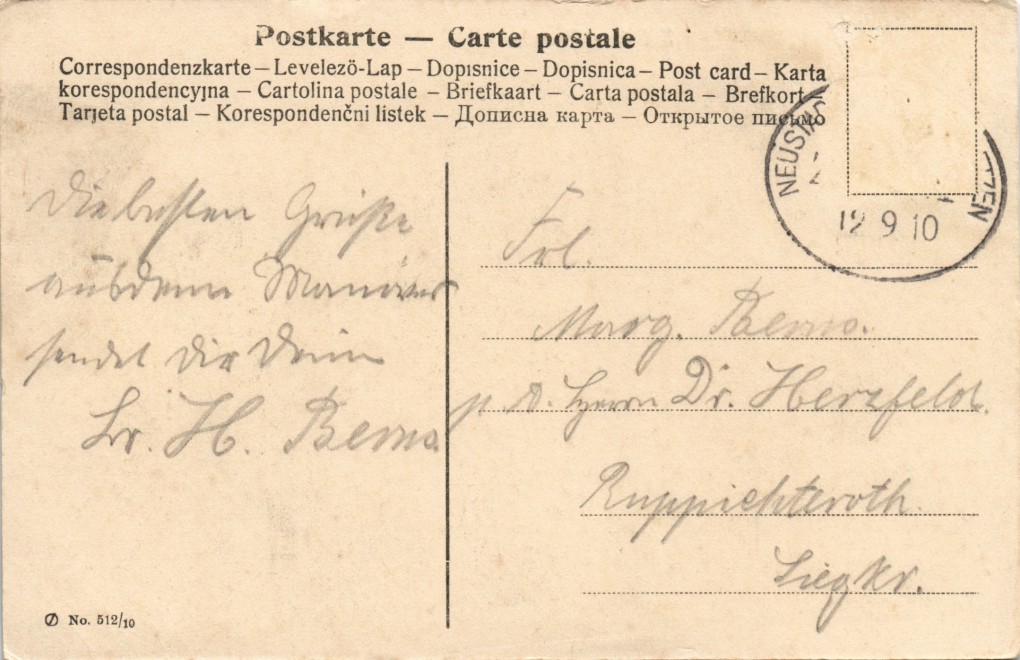 Postkarte — Carte postale
Correspondenzkarte – Levelező-Lap – Dopisnice – Dopisnica – Post card – Karta
korespondencyjna – Cartolina postale – Briefkaart – Carta postala – Brefkort –
Tarjeta postal – Korespondenčni listek – Дописна карта – Открытое письмо
NEUSTA
ZEN
12 9 10
Die besten Grüße
aus dem Manöver
sendet Dir Dein
Br. H. Bems
Frl.
Marg. Bems.
p. A. Herrn Dr. Herzfeld.
Ruppichteroth.
Siegkr.
No. 512/10